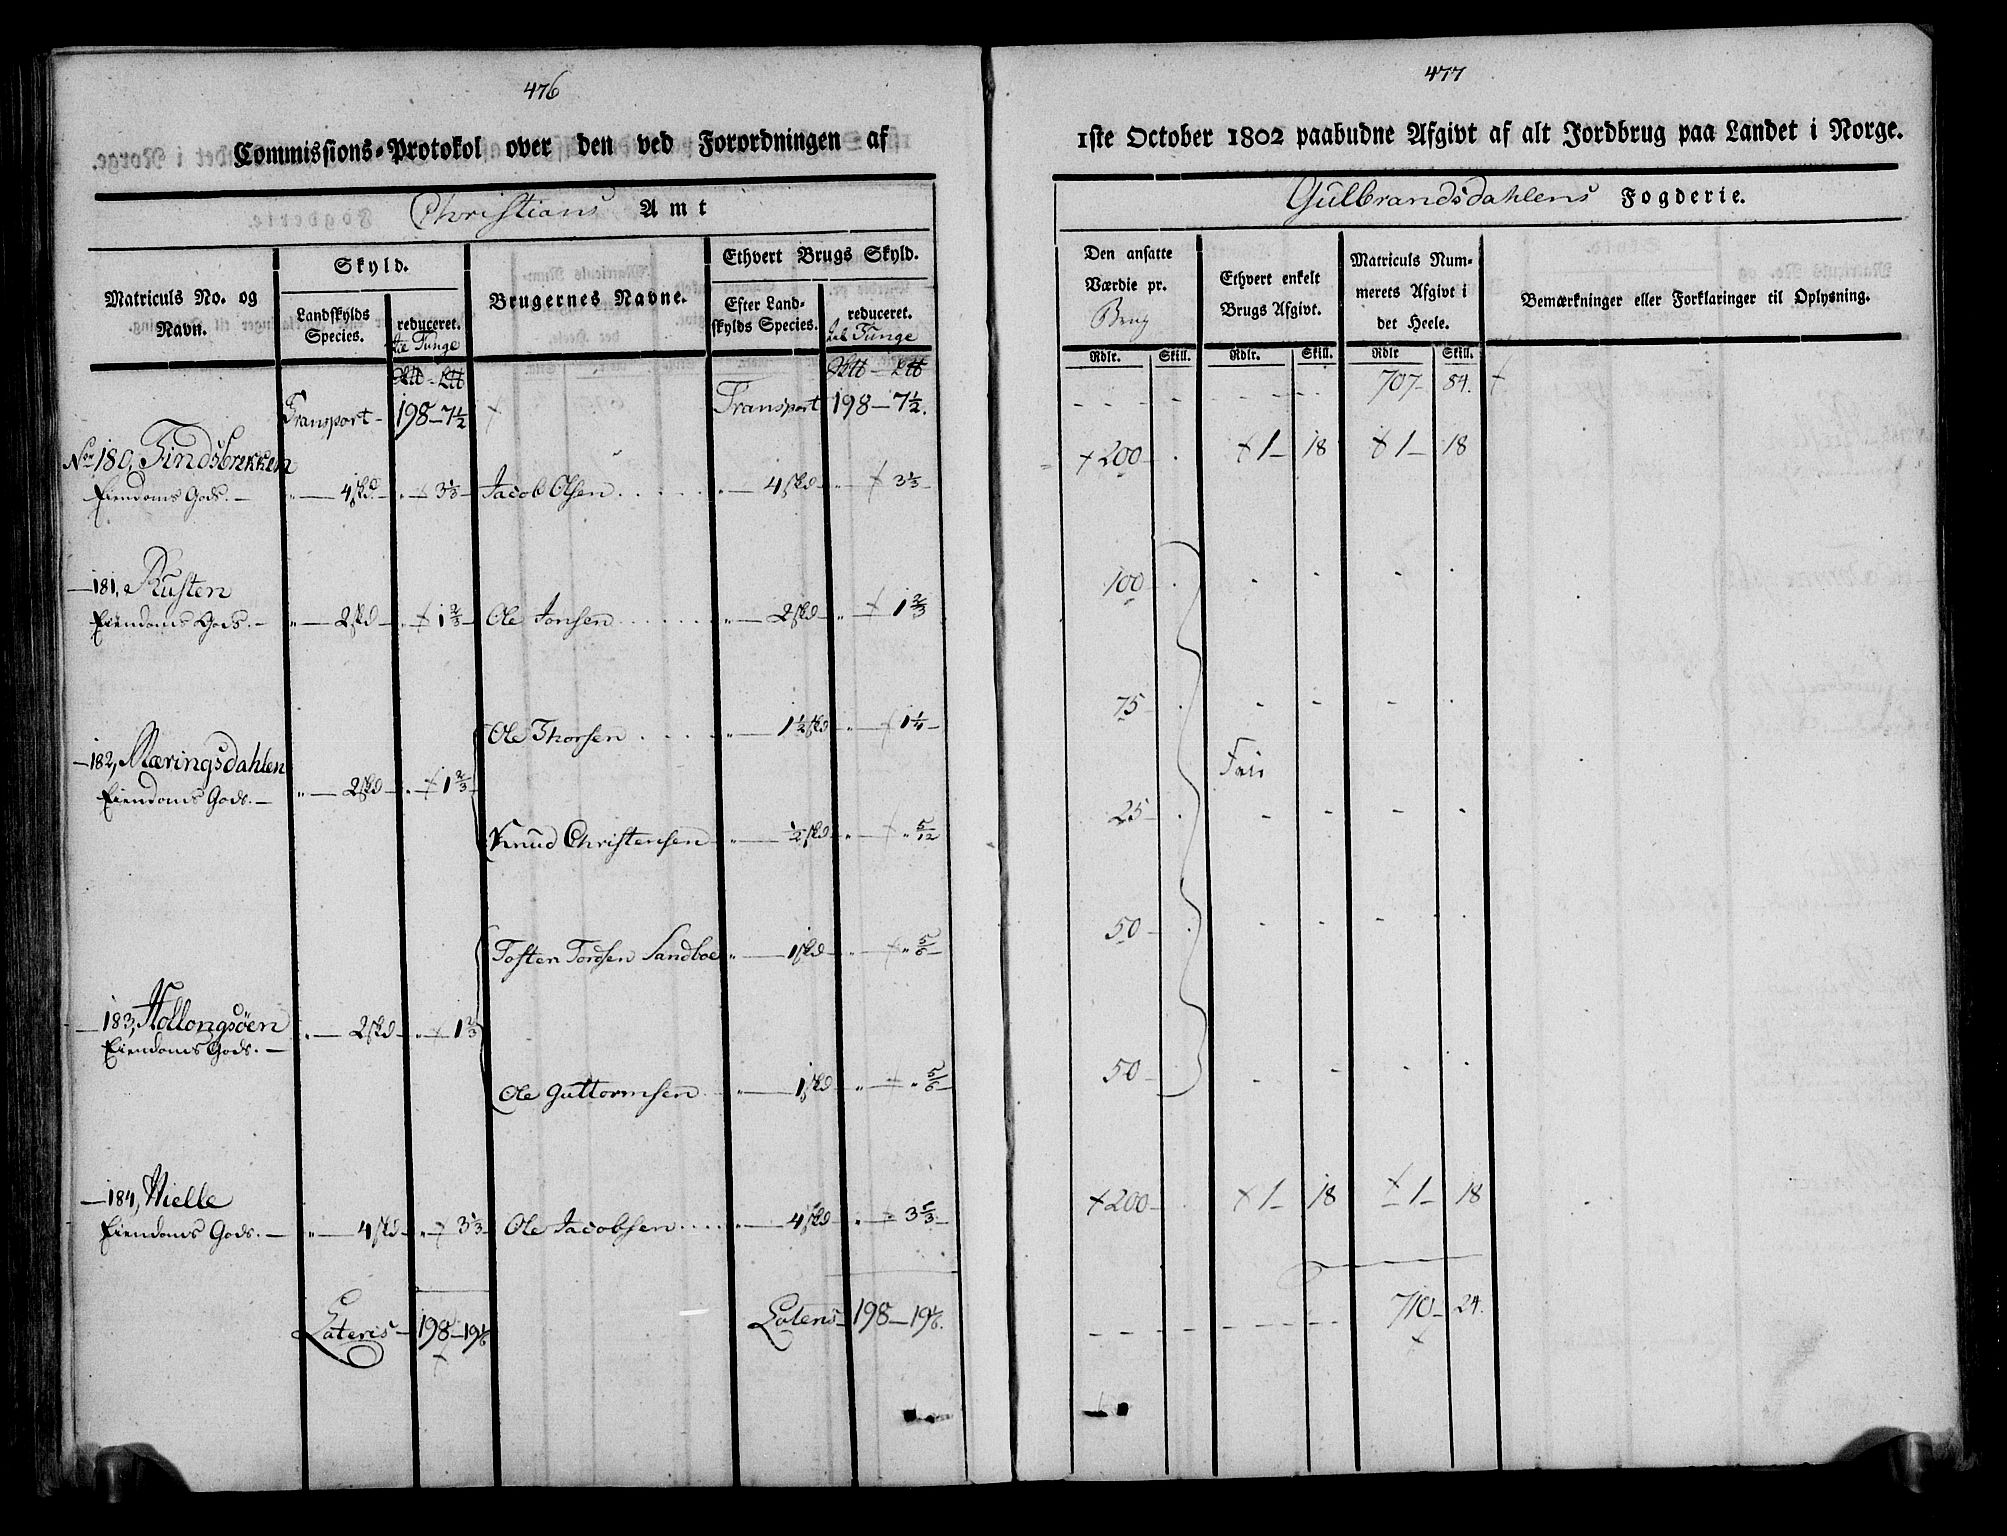 476
Commissions-Protokol over den ved Forordningen af
Christians Amt
Matriculs No. og Navn.
Skyld.
Landskylds Species.
reduceret. til Tunge
Brugernes Navne.
Ethvert Brugs Skyld.
Efter Landskylds Species.
reduceret. til Tunge
Transport - 198 - 7½ Transport 198 - 7½.
No 180, Findsbrekken
Eiendoms Gods. - " - 4 skd. " - 3⅓ - Jacob Olsen " - 4 skd - " - 3⅓ -
- 181, Rusten
Eiendoms Gods. - " - 2 skd - " - 1⅔ - Ole Jonsen " - 2 skd - " - 1⅔
Ole Thorsen " - 1½ skd " - 1¼ -
- 182, Næringsdahlen
Eiendoms Gods. - " - 2 skd - " - 1⅔
Knud Christensen " - ½ skd - " - " 5/12
Tosten Tordsen Sandboe " - 1 skd - " - " 5/6 -
- 183, Hollongsöen
Eiendoms Gods. - " - 2 skd - " - 1⅔
Ole Guttormsen " - 1 skd - " - " 5/6
- 184, Hielle
Eiendoms Gods. - " - 4 skd - " - 3⅓ - Ole Jacobsen " - 4 skd - " - 3⅓ -
Lateris - 198 - 19⅙ Lateris - 198 - 19⅙.
477
1ste October 1802 paabudne Afgivt af alt Jordbrug paa Landet i Norge.
Gulbrandsdahlens Fogderie.
Den ansatte Værdie pr. Brug
Ethvert enkelt Brugs Afgivt.
Matriculs Nummerets Afgivt i det Heele.
Bemærkninger eller Forklaringer til Oplysning.
Rdlr. Skill. Rdlr. Skill. Rdlr Skill.
707 - 84.
200 - 1 - 18 1 - 18
100
75 -
Fri
25 -
50 -
50 -
200 - 1 - 18 1 - 18
710 - 24.